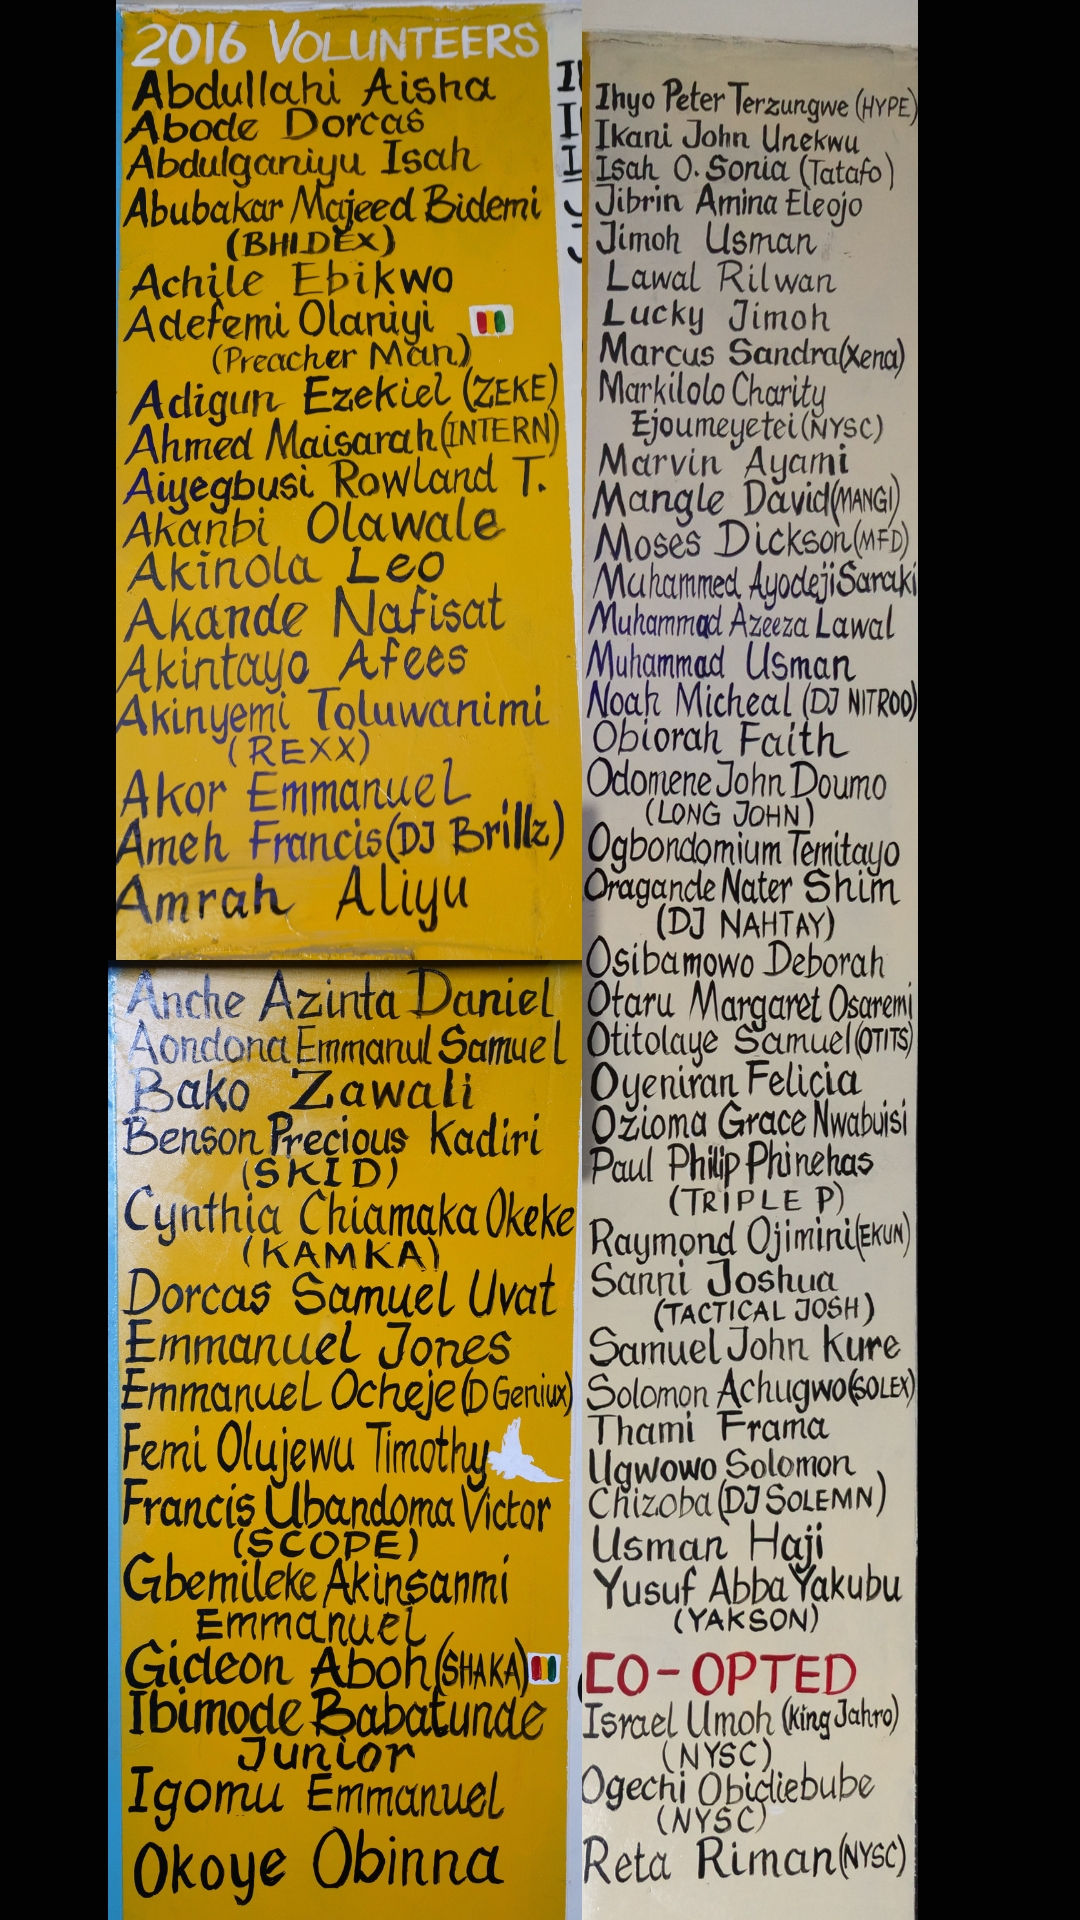 2016 VOLUNTEERS
Abdullahi Aisha
Abode Dorcas
Abdulganiyu Isah
Abubakar Majeed Bidemi
(BHIDEX)
Achile Ebikwo
Adefemi Olaniyi
(Preacher Man)
Adigun Ezekiel (ZEKE)
Ahmed Maisarah (INTERN)
Aiyegbusi Rowland T.
Akanbi Olawale
Akinola Leo
Akande Nafisat
Akintayo Afees
Akinyemi Toluwanimi
(REXX)
Akor Emmanuel
Ameh Francis (DJ Brillz)
Amrah Aliyu
Anche Azinta Daniel
Aondona Emmanul Samuel
Bako Zawali
Benson Precious Kadiri
(SKID)
Cynthia Chiamaka Okeke
(KAMKA)
Dorcas Samuel Uvat
Emmanuel Jones
Emmanuel Ocheje (D Geniux)
Femi Olujewu Timothy
Francis Ubandoma Victor
(SCOPE)
Gbemileke Akinsanmi
Emmanuel
Gideon Aboh (SHAKA)
Ibimode Babatunde
Junior
Igomu Emmanuel
Okoye Obinna
Ihyo Peter Terzungwe (HYPE)
Ikani John Unekwu
Isah O. Sonia (Tatafo)
Jibrin Amina Eleojo
Jimoh Usman
Lawal Rilwan
Lucky Jimoh
Marcus Sandra (Xena)
Markilolo Charity
Ejoumeyetei (NYSC)
Marvin Ayami
Mangle David (MANGI)
Moses Dickson (MFD)
Muhammed Ayodeji Saraki
Muhammad Azeeza Lawal
Muhammad Usman
Noah Micheal (DJ NITROO)
Obiorah Faith
Odomene John Doumo
(LONG JOHN)
Ogbondomium Temitayo
Oragande Nater Shim
(DJ NAHTAY)
Osibamowo Deborah
Otaru Margaret Osaremi
Otitolaye Samuel (OTITS)
Oyeniran Felicia
Ozioma Grace Nwabuisi
Paul Philip Phinehas
(TRIPLE P)
Raymond Ojimini (EKUN)
Sanni Joshua
(TACTICAL JOSH)
Samuel John Kure
Solomon Achugwo (SOLEX)
Thami Frama
Ugwowo Solomon
Chizoba (DJ SOLEMN)
Usman Haji
Yusuf Abba Yakubu
(YAKSON)
CO-OPTED
Israel Umoh (King Jahro)
(NYSC)
Ogechi Obidiebube
(NYSC)
Reta Riman (NYSC)